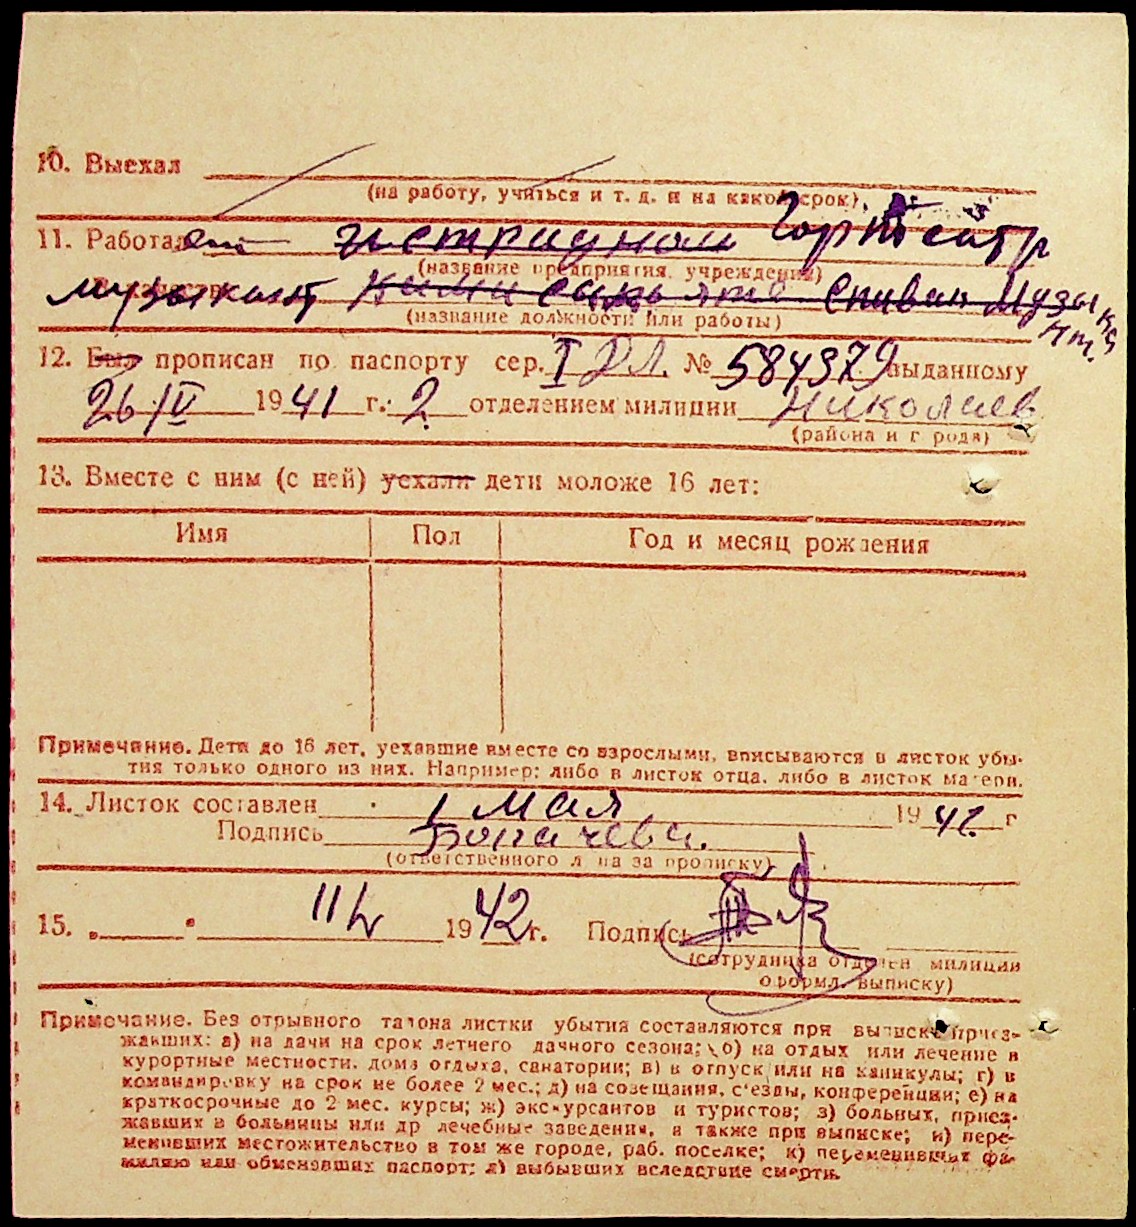 10. Выехал
(на работу, учиться и т. д. и на какой срок)
11. Работа
(название предприятия, учреждения)
музыкант
(название должности или работы)
12. Был прописан по паспорту сер. I ДЛ. № 584379 выданному
26/IV 1941 г. 2 отделением милиции Николаев
(района и г рода)
13. Вместе с ним (с ней) уехали дети моложе 16 лет:
Имя Пол Год и месяц рождения
Примечание. Дети до 16 лет, уехавшие вместе со взрослыми, вписываются в листок убы-
тия только одного из них. Например: либо в листок отца, либо в листок матери.
14. Листок составлен 1 мая 1942 г
Подпись
(ответственного л ца за прописку)
15. „ " 11/V 1942 г. Подпись
(сотрудника отделен милиции
оформл. выписку)
Примечание. Без отрывного талона листки убытия составляются при выписке приез-
жавших: а) на дачи на срок летнего дачного сезона; б) на отдых или лечение в
курортные местности, дома отдыха, санатории; в) в отпуск или на каникулы; г) в
командировку на срок не более 2 мес.; д) на совещания, с'езды, конференции; е) на
краткосрочные до 2 мес. курсы; ж) экскурсантов и туристов; з) больных, приез-
жавших в больницы или др лечебные заведения, а также при выписке; и) пере-
менивших местожительство в том же городе, раб. поселке; к) переменивших фа-
милию или обменявших паспорт; л) выбывших вследствие смерти.